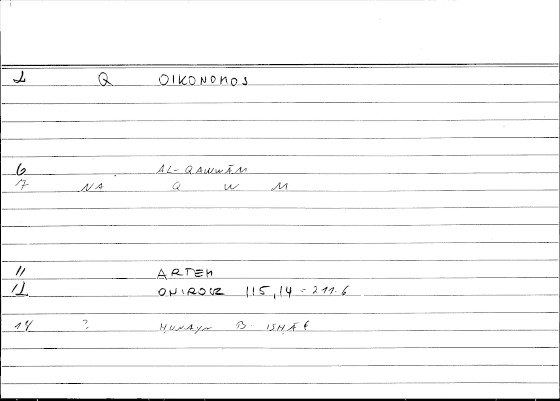 1 Q OIKONOMOS
6 AL-QAWWĀM
7 NA Q W M
11 ARTEM
12 ONIROCR 115,14 - 211.6
14 ? HUNAYN B. ISHĀQ